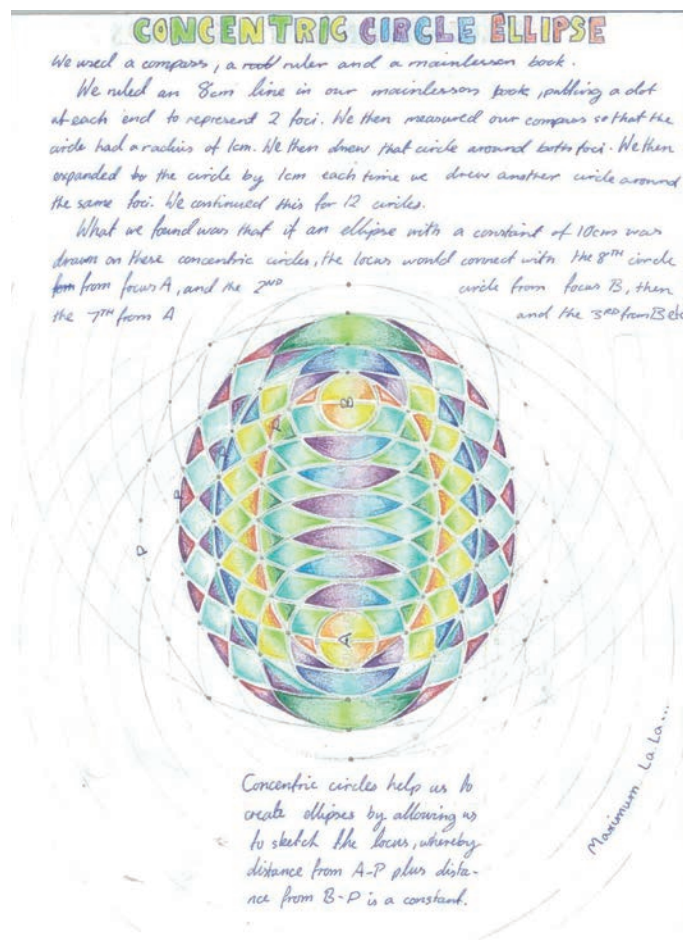 CONCENTRIC CIRCLE ELLIPSE
We used a compass, a ruler and a mainlesson book.
We ruled an 8cm line in our mainlesson book, putting a dot
at each end to represent 2 foci. We then measured our compass so that the
circle had a radius of 1cm. We then drew that circle around both foci. We then
expanded the circle by 1cm each time we drew another circle around
the same foci. We continued this for 12 circles.
What we found was that if an ellipse with a constant of 10cm was
drawn on these concentric circles, the locus would connect with the 8TH circle
from focus A, and the 2ND circle from focus B, then
the 7TH from A and the 3RD from B etc
B
P
P
P
P
A
Maximum La La...
Concentric circles help us to
create ellipses by allowing us
to sketch the locus, whereby
distance from A-P plus dista-
nce from B-P is a constant.